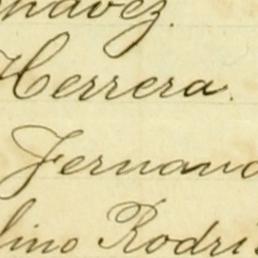 Chávez.
Herrera.
Fernand
lino Rodri